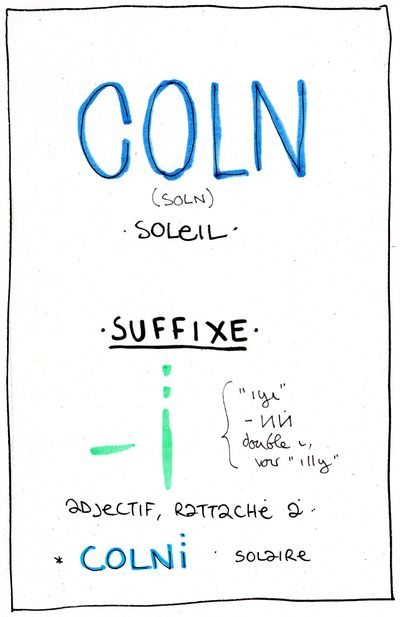 COLN
(SOLN)
·SOLEIL·
·SUFFIXE·
-i
"iyi"
- ИЙ
double i,
voir "illy"
ADJECTIF, RATTACHÉ À ·
* COLNi · SOLAIRE